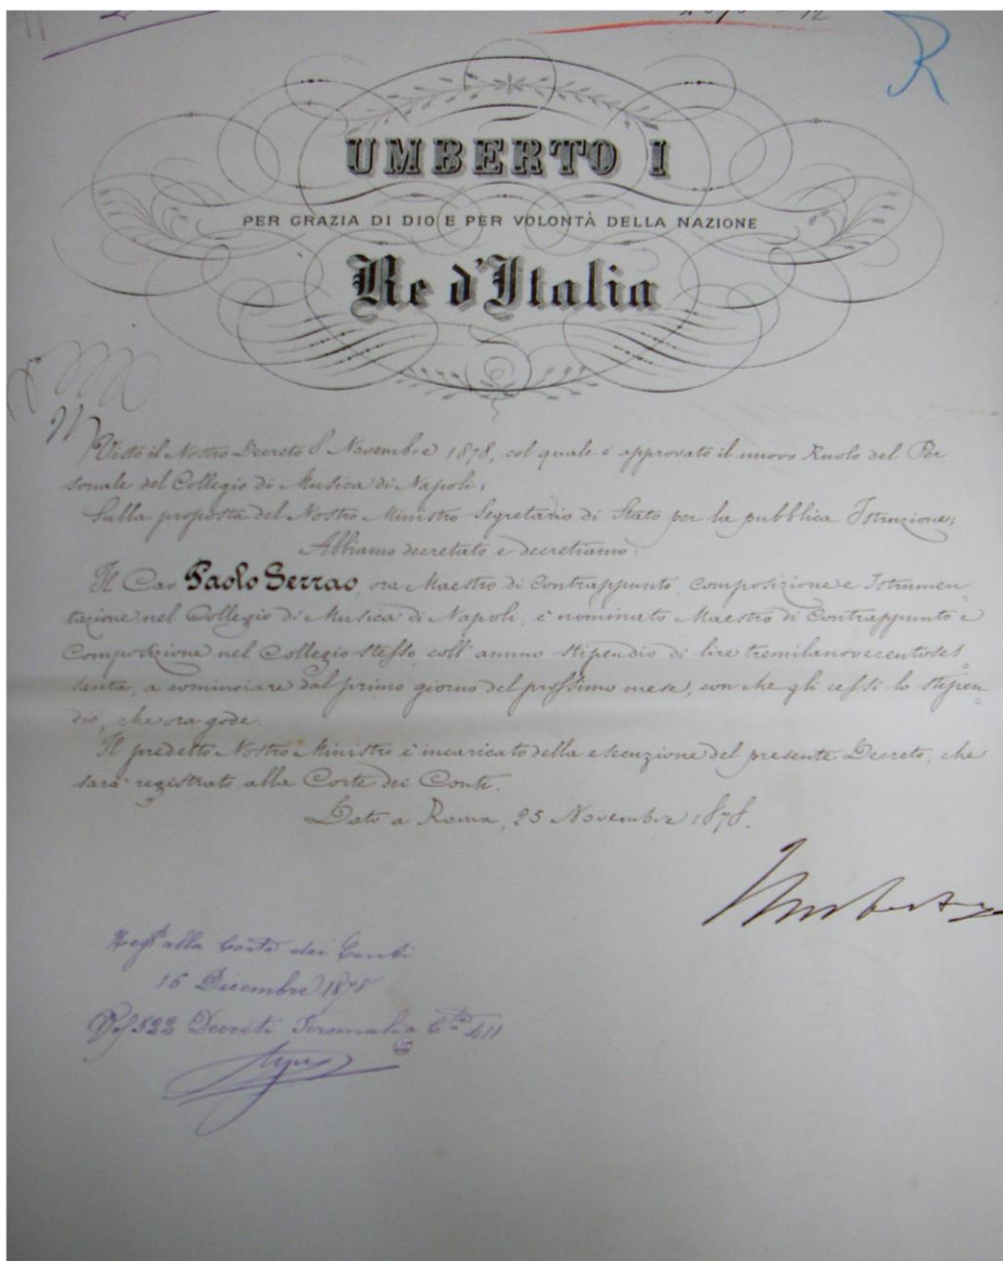 R
UMBERTO I
PER GRAZIA DI DIO E PER VOLONTÀ DELLA NAZIONE
Re d'Italia
Visto il Nostro Decreto 8 Novembre 1878, col quale è approvato il nuovo Ruolo del Per
sonale del Collegio di Musica di Napoli;
Sulla proposta del Nostro Ministro Segretario di Stato per la pubblica Istruzione;
Abbiamo decretato e decretiamo:
Il Cav. Paolo Serrao, ora Maestro di Contrappunto, composizione e Istrumen=
tazione nel Collegio di Musica di Napoli, è nominato Maestro di Contrappunto e
Composizione nel Collegio stesso, coll'annuo stipendio di lire tremilanovecentoses=
santa, a cominciare dal primo giorno del prossimo mese, con che gli cessi lo stipen=
dio, che ora gode.
Il predetto Nostro Ministro è incaricato della esecuzione del presente Decreto, che
sarà registrato alla Corte dei Conti.
Dato a Roma, 25 Novembre 1878.
Umberto
Regto alla Corte dei Conti
16 Dicembre 1878
522 Decreti 411